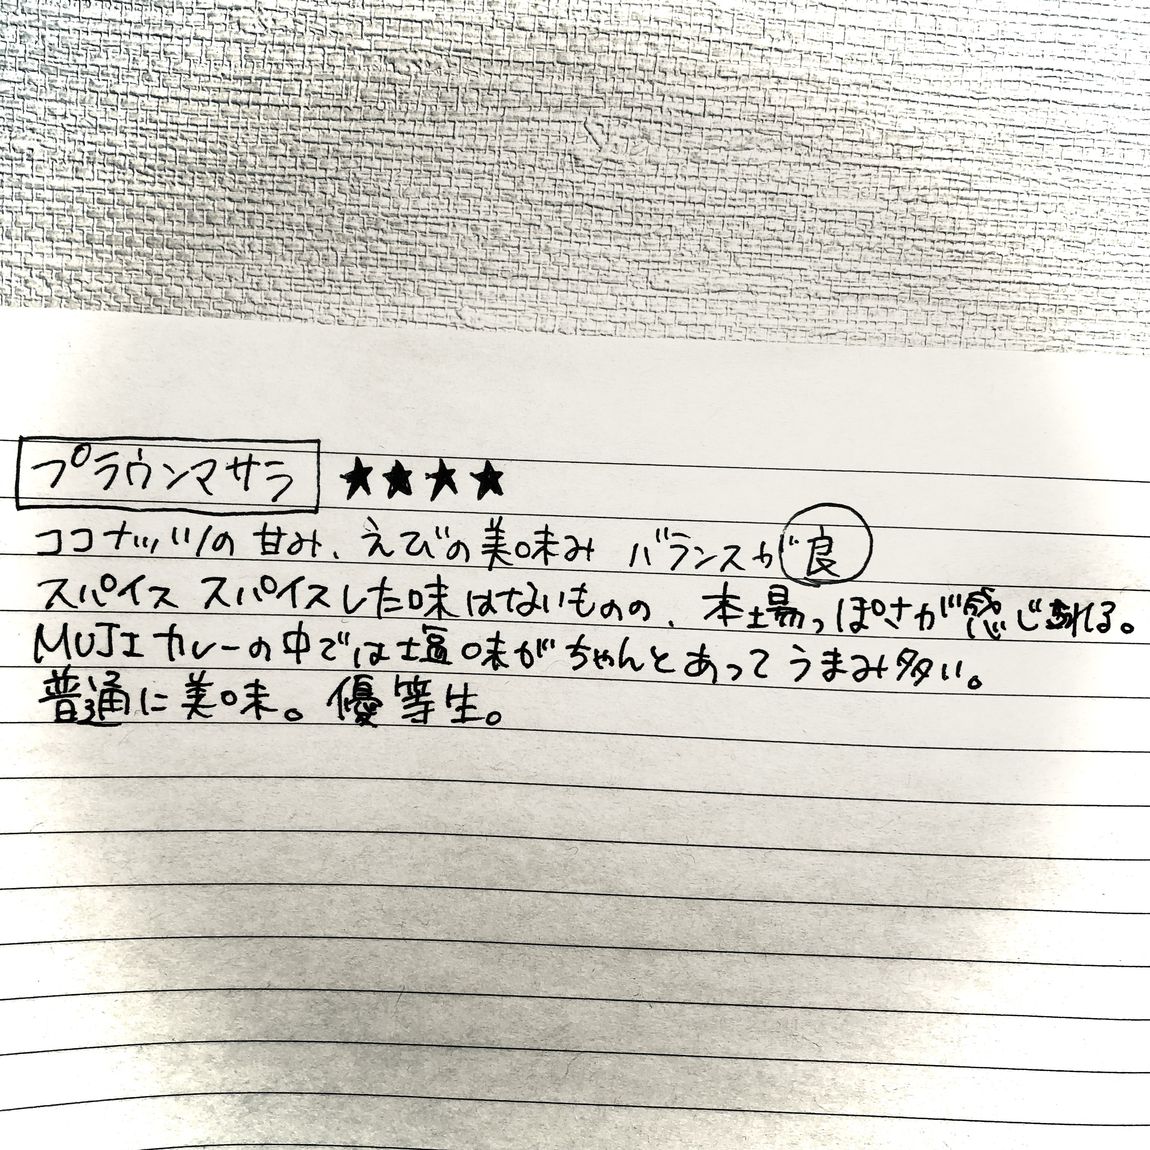 プラウンマサラ ★★★★
ココナッツの甘み、えびの美味み バランスが良
スパイス スパイスした味はないものの、本場っぽさが感じられる。
MUJIカレーの中では塩味がちゃんとあってうまみ多い。
普通に美味。優等生。